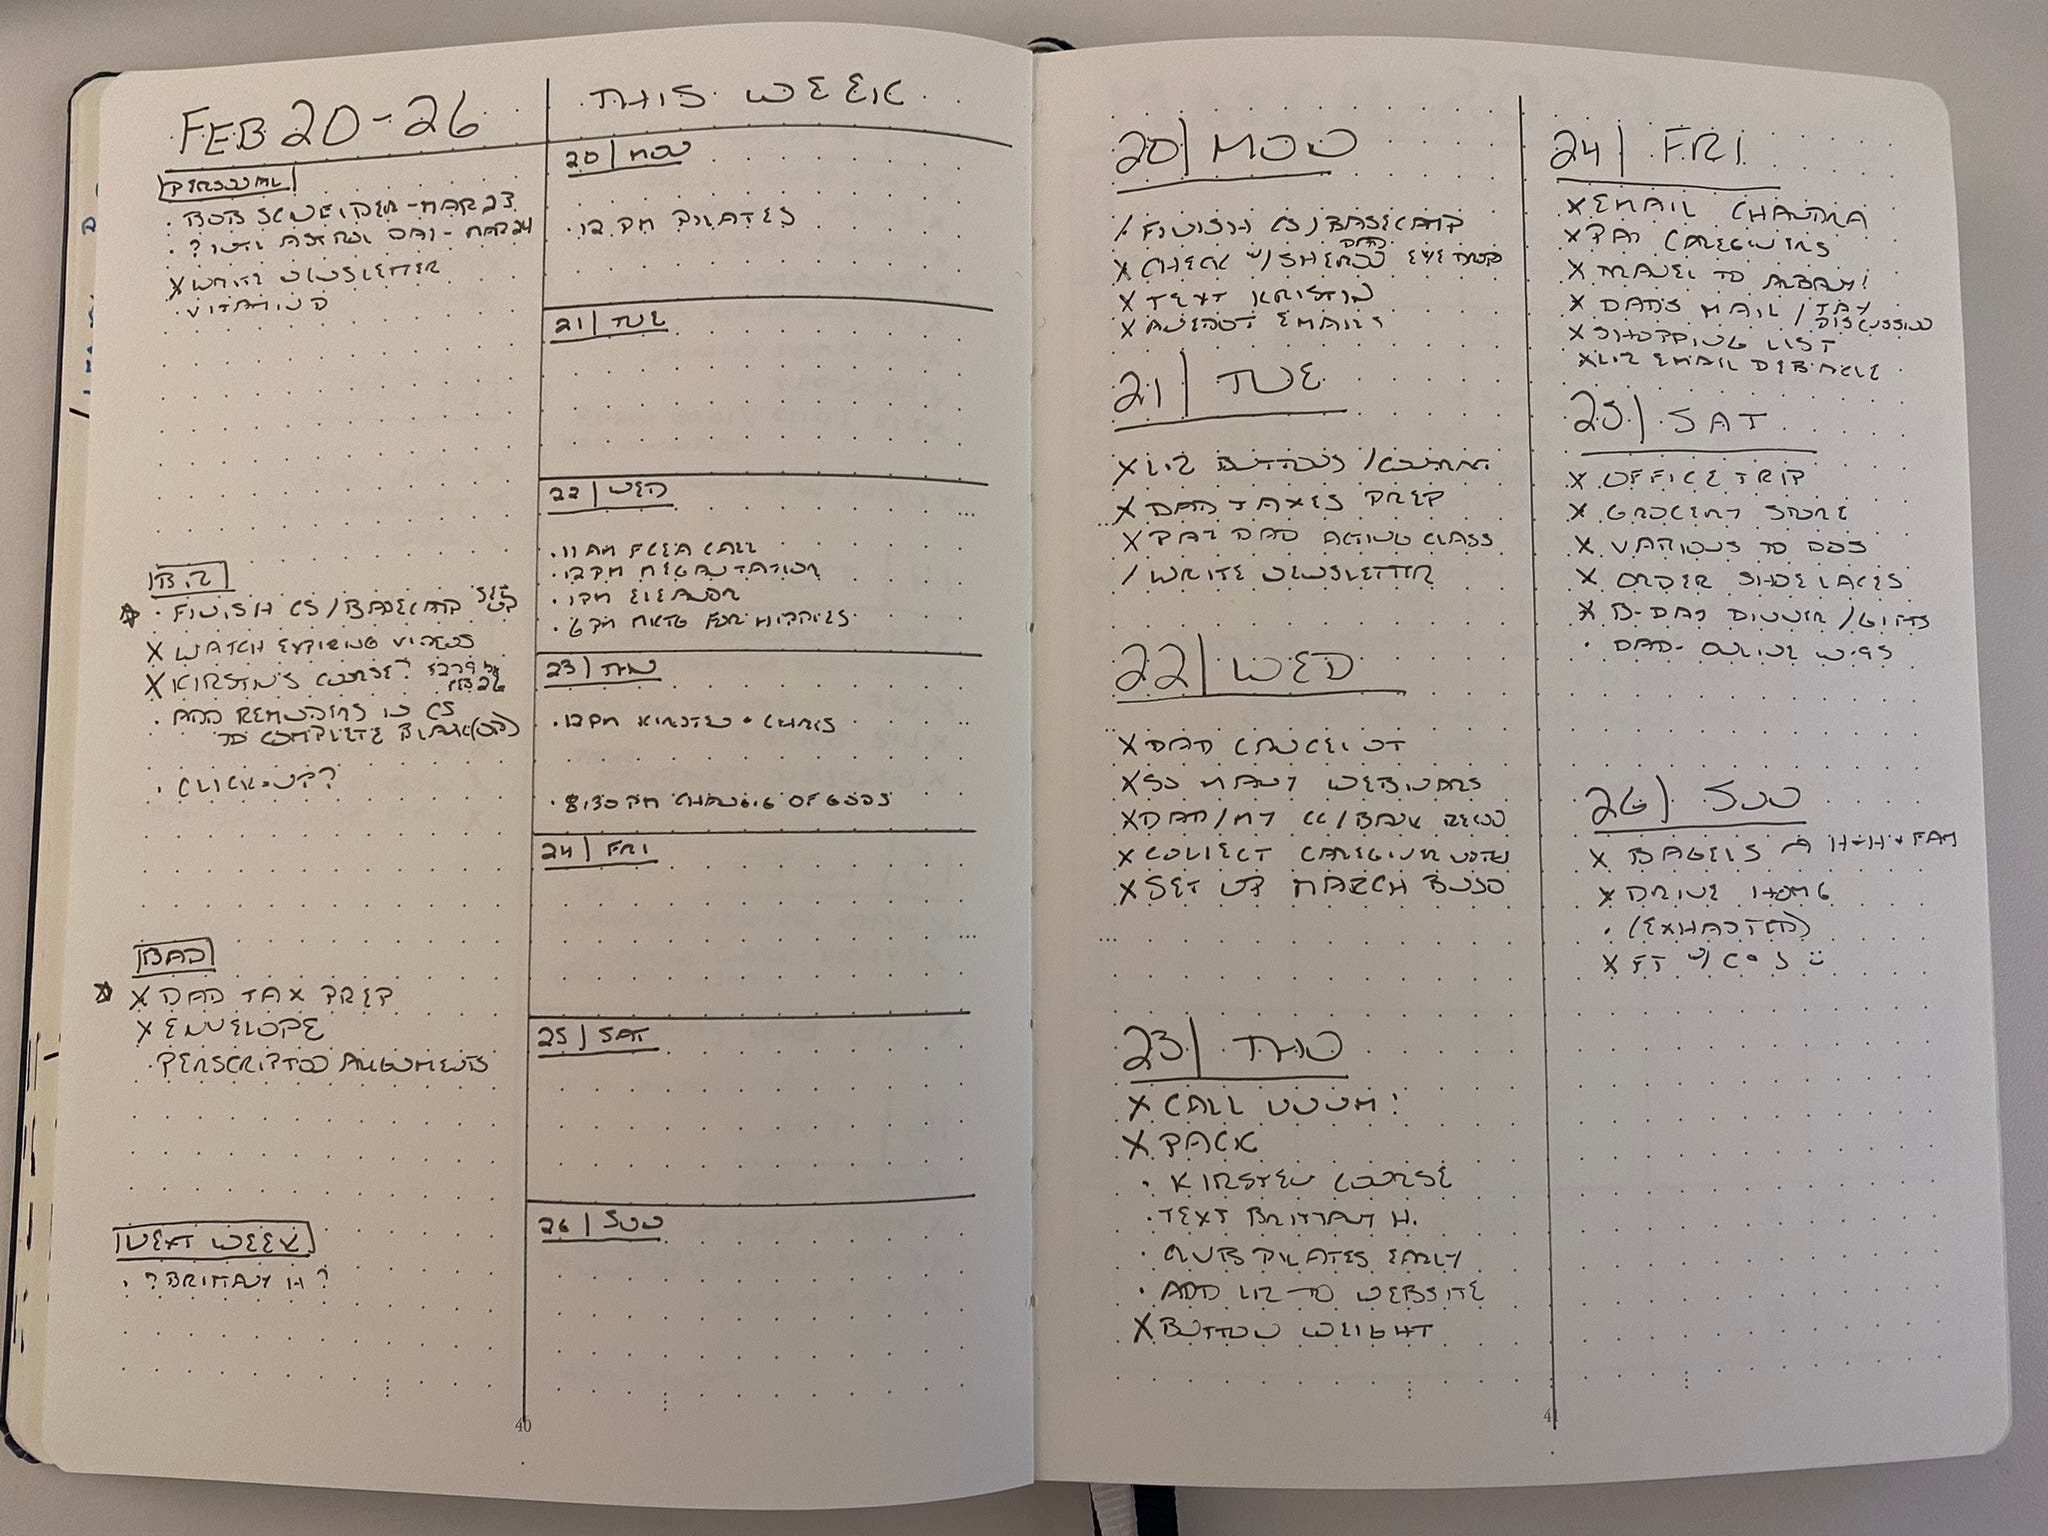 FEB 20-26
PERSONAL
. BOB SCHNEIDER - MAR 23
. ? INTL ASTROL DAY - MAR 24
X WRITE NEWSLETTER
. VITAMIN D
BIZ
☆ . FINISH CS/BASECAMP SET UP
X WATCH EXPIRING VIDEOS
X KIRSTIN'S COURSE? $279 by FEB 26
. ADD REMINDERS IN CS
TO COMPLETE BLANK
. CLICK-UP?
DAD
☆ X DAD TAX PREP
X ENVELOPE
. PERSCRIPTION ALIGNMENTS
NEXT WEEK
. ? BRITTANY H ?
THIS WEEK
20 | MON
. 12 PM PILATES
21 | TUE
22 | WED
. 11 AM FCEA CALL
. 12 PM
. 1PM ELEANOR
. 6 PM MKTG FOR HIPPIES
23 | THU
. 12 PM KIRSTEN + CHRIS
. 8:30 PM CHANGING OF GODS
24 | FRI
25 | SAT
26 | SUN
40
20 | MON
/ FINISH CS/BASECAMP
X CHECK W/ SHERON DAD EYE DROP
X TEXT KRISTIN
X EMAILS
21 | TUE
X LIZ BUTTONS /
X DAD TAXES PREP
X PAY DAD ACTING CLASS
/ WRITE NEWSLETTER
22 | WED
X DAD CANCEL OT
X SO MANY WEBINARS
X DAD/MY CC/BANK RECON
X COLLECT CAREGIVER NOTES
X SET UP MARCH BUJO
23 | THU
X CALL VNOM!
X PACK
. KIRSTEN COURSE
. TEXT BRITTANY H.
. CLUB PILATES EARLY
. ADD LIZ TO WEBSITE
X BUTTON WEIGHT
24 | FRI
X EMAIL CHANDRA
X PAY CAREGIVERS
X TRAVEL TO ALBANY!
X DAD'S MAIL / TAX DISCUSSION
X SHOPPING LIST
X LIZ EMAIL DEBACLE
25 | SAT
X OFFICE TRIP
X GROCERY STORE
X VARIOUS TO DOS
X ORDER SHOELACES
X B-DAY DINNER / GIFTS
. DAD - ONLINE W-9S
26 | SUN
X BAGELS H+H+FAM
X DRIVE HOME
. (EXHAUSTED)
X FT W/ C+S
41